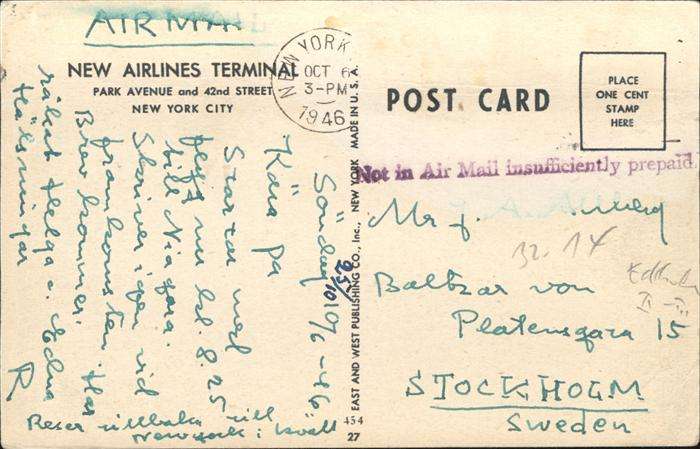 AIR MAIL
NEW AIRLINES TERMINAL
PARK AVENUE and 42nd STREET
NEW YORK CITY
NEW YORK
OCT 6
3-PM
1946
POST CARD
PLACE
ONE CENT
STAMP
HERE
Not in Air Mail insufficiently prepaid.
MADE IN U.S.A.
EAST AND WEST PUBLISHING CO., Inc., NEW YORK
454
27
Söndag 6/10 -46
Kära Pa
Startar med
flyg nu kl. 8.25
till Niagara.
Skriver igen vid
framkomsten. Har
Brev kommer.
råkat Helga o. Edna
Hälsningar
R
Reser tillbaka till
Newyork i kväll
25/10
Mr
32. 14
Baltzar von
Platensgara 15
STOCKHOLM
Sweden